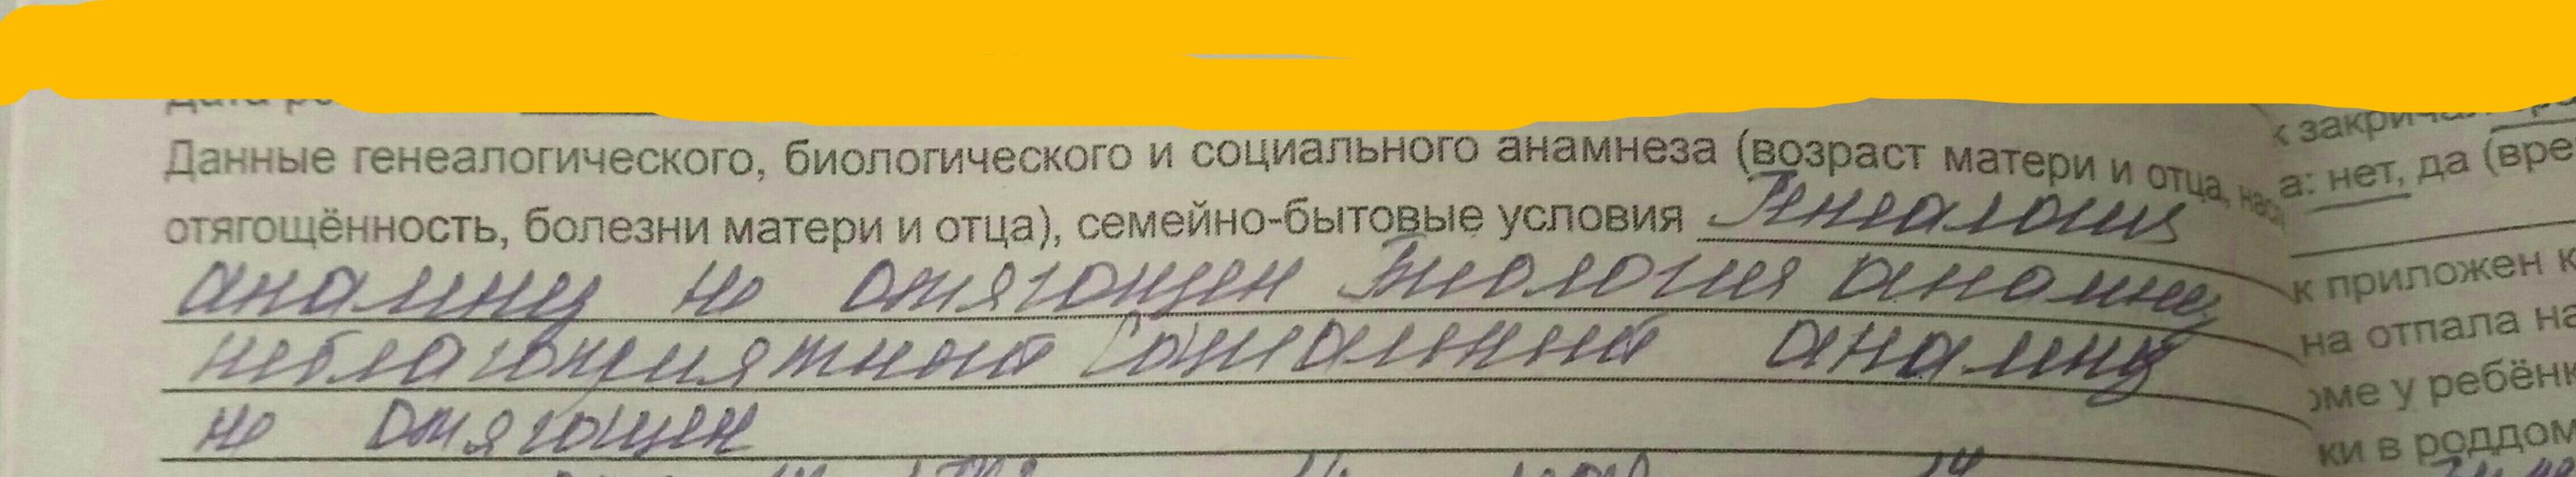 Данные генеалогического, биологического и социального анамнеза (возраст матери и отца,
отягощённость, болезни матери и отца), семейно-бытовые условия Генеалогия
анамнез не отягощен Биология анамнез
неблагоприятный Социальный анамнез
не отягощен
а: нет, да (вре
к приложен к
на отпала на
оме у ребёнк
ки в роддом